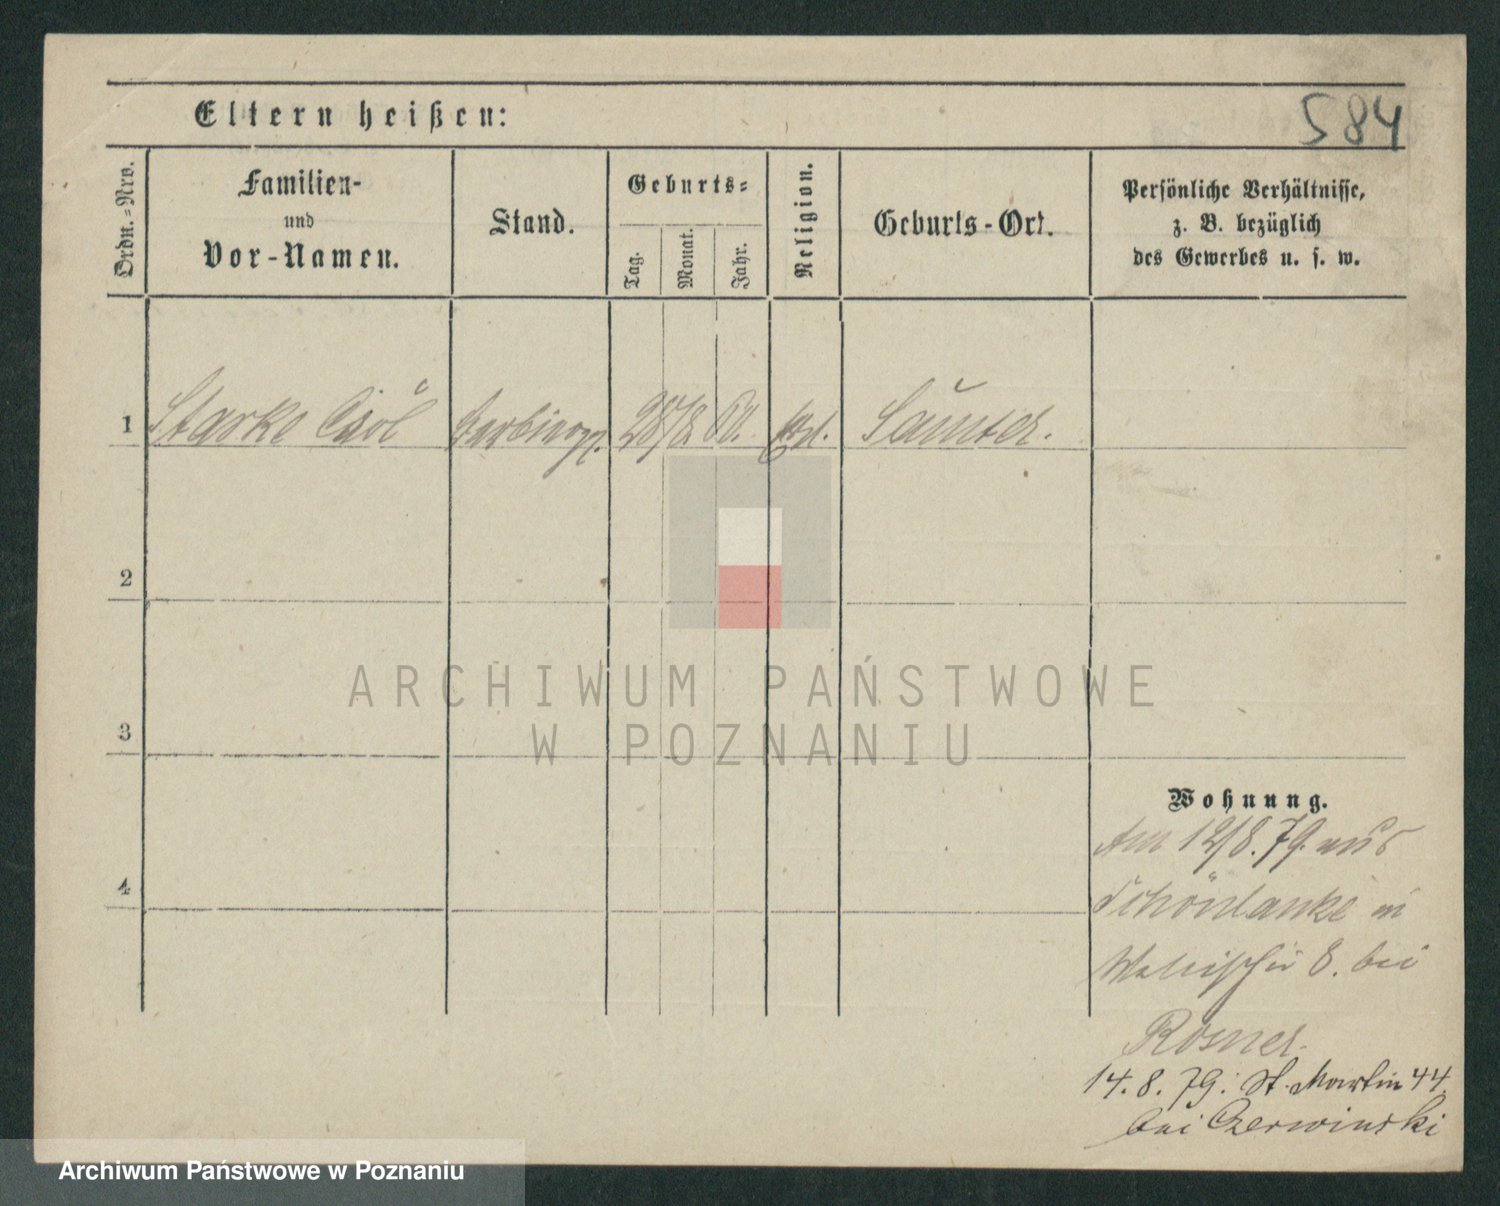 Eltern heißen:
584
Ordn.=Nro.
Familien-
und
Vor-Namen.
Stand.
Geburts=
Tag.
Monat.
Jahr.
Religion.
Geburts-Ort.
Persönliche Verhältnisse,
z. B. bezüglich
des Gewerbes u. s. w.
1 Starke 28/8 60.
2
3
4
ARCHIWUM PAŃSTWOWE
W POZNANIU
Wohnung.
Am 12/8. 79. aus
Schönlanke in
Wallischei 8. bei
Rosner.
14. 8. 79: St. Martin 44.
bei Czerwinski
Archiwum Państwowe w Poznaniu